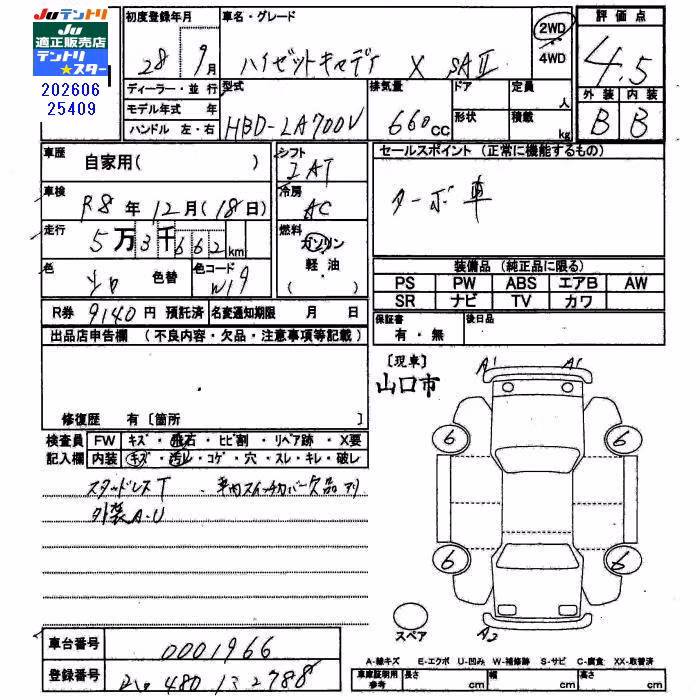 Juテントリ
Ju
適正販売店
テントリ
★スター
202606
25409
初度登録年月
28 9月
車名・グレード
ハイゼットキャディ X SAⅡ
2WD
4WD
評価点
4.5
外装 内装
B B
ディーラー・並行
モデル年式 年
ハンドル 左・右
型式
HBD-LA700V
排気量
660cc
ドア
形状
定員
人
積載
kg
車歴
自家用( )
シフト
IAT
セールスポイント (正常に機能するもの)
ターボ車
車検
R8年12月(18日)
冷房
AC
走行
5万3千662km
燃料
ガソリン
軽・油
( )
色
シロ
色替
色コード
W19
装備品 (純正品に限る)
PS PW ABS エアB AW
SR ナビ TV カワ
R券 9140円 預託済
名変通知期限 月 日
保証書
有・無
後日品
出品店申告欄 (不良内容・欠品・注意事項等記載)
修復歴 有〔箇所 〕
〔現車〕
山口市
検査員
記入欄
FW キズ・飛石・ヒビ割・リペア跡・X要
内装 キズ・汚レ・コゲ・穴・スレ・キレ・破レ
スタッドレスT ・車内スイッチカバー欠品アリ
外装A-U
A1 A1
6 6
6 6
スペア
A2
車台番号
0001966
登録番号
480 2788
A-線キズ E-エクボ U-凹み W-補修跡 S-サビ C-腐食 XX-取替済
車庫証明用
参考
長さ cm
幅 cm
高さ cm